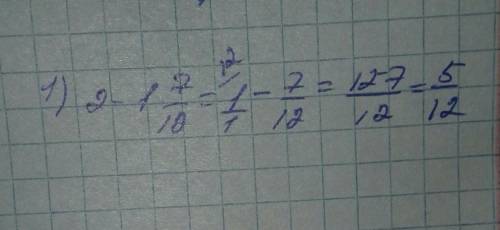 1) 2 - 1 7/12 = 1/1 - 7/12 = 127/12 = 5/12